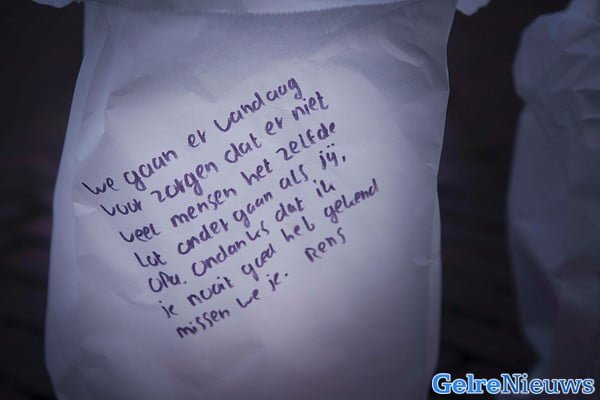 We gaan er vandaag
voor zorgen dat er niet
veel mensen het zelfde
lot ondergaan als jij,
opa. Ondanks dat ik
je nooit goed heb gekend
missen we je. Rens
GelreNieuws